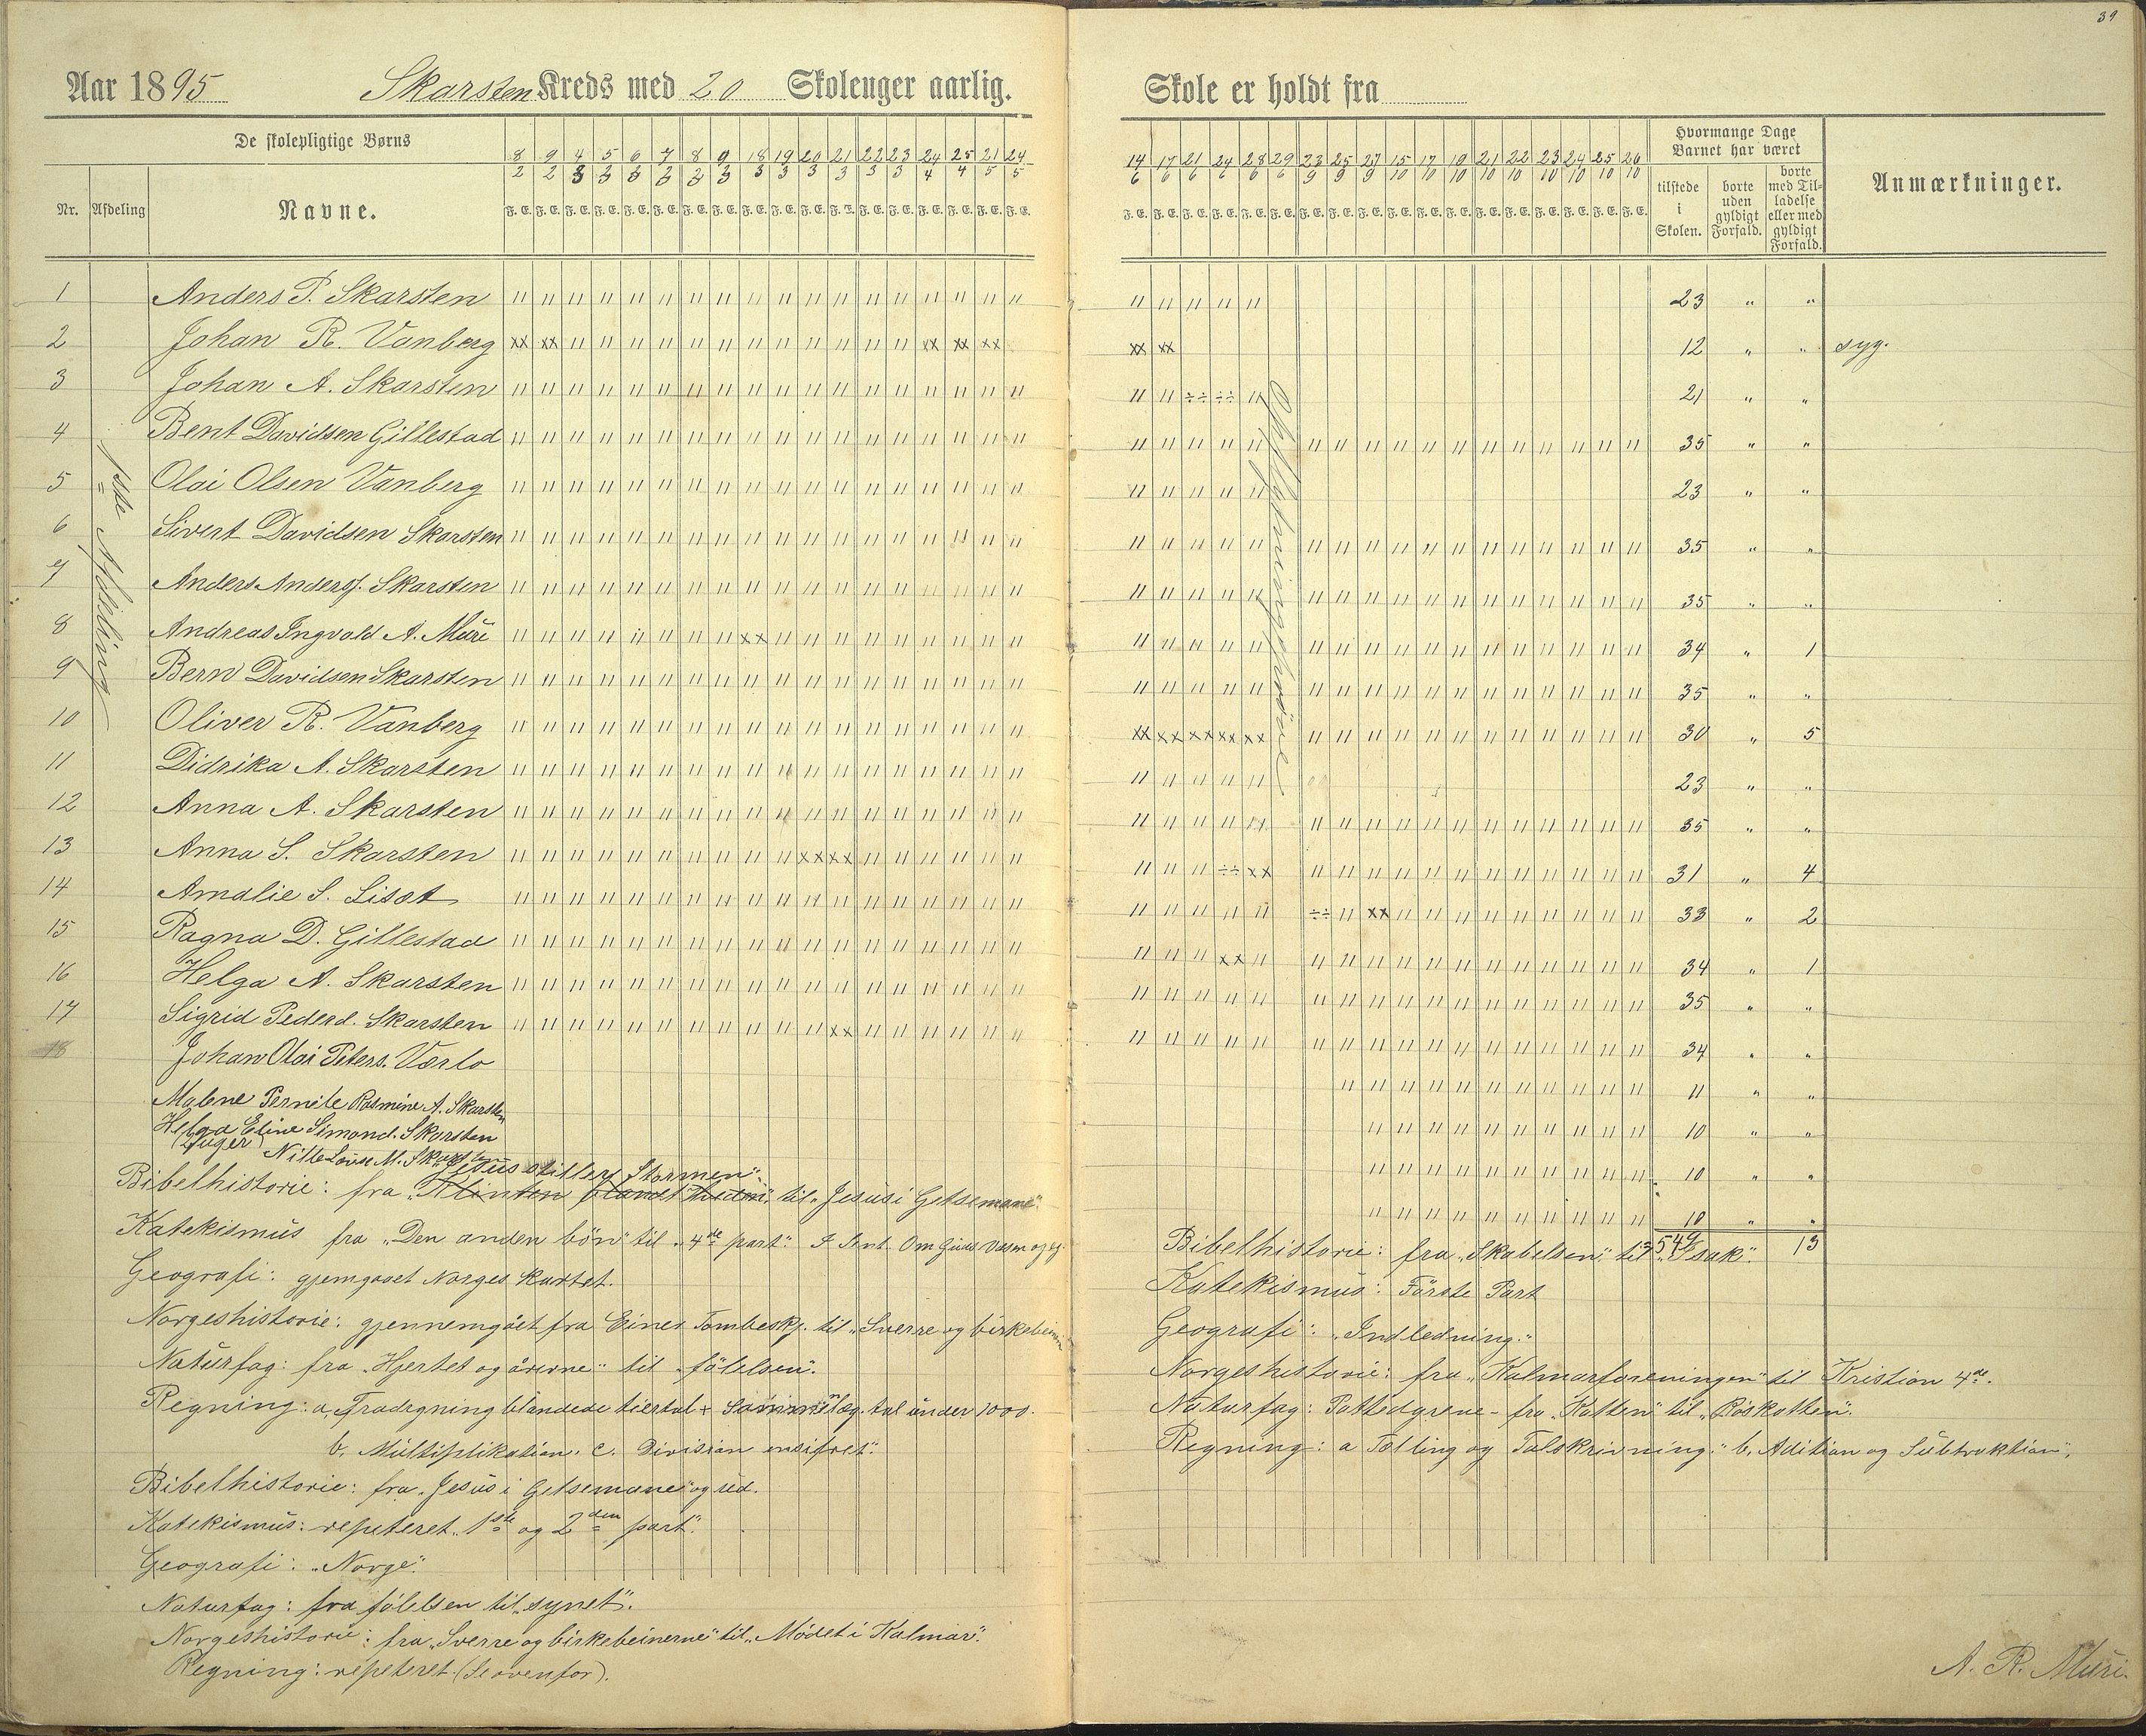 39
Aar 1895 Skarsten Kreds med 20 Skoleuger aarlig.
De skolepligtige Børns
8/2 9/2 4/3 5/3 6/3 7/3 8/3 9/3 18/3 19/3 20/3 21/3 22/3 23/3 24/4 25/4 21/5 24/5
Nr. Afdeling Navne. F. E. F. E. F. E. F. E. F. E. F. E. F. E. F. E. F. E. F. E. F. E. F. E. F. E. F. E. F. E. F. E. F. E. F. E.
1 Anders P. Skarsten
2 Johan R. Vanberg
3 Johan A. Skarsten
4 Bent Davidsen Gillestad
5 Olai Olsen Vanberg
6 Sivert Davidsen Skarsten
7 Anders Andersf. Skarsten
8 Andreas Ingvald A. Muri
9 Bern Davidsen Skarsten
10 Oliver R. Vanberg
11 Didrika A. Skarsten
12 Anna A. Skarsten
13 Anna S. Skarsten
14 Amalie S. Lisæt
15 Ragna D. Gillestad
16 Helga A. Skarsten
17 Sigrid Pedersd. Skarsten
18 Johan Olai Peters. Værlo
Malene Pernile Rasmine A. Skarsten
Helga Eline Simond. Skarsten
(2 uger) Nille Lovise M. Skarsten
Afdeling
"Jesus stiller Stormen".
Bibelhistorie: fra "Klinten blandt hveden" til "Jesus i Getsemane"
Katekismus fra "Den anden bön" til "4de part".
Geografi: gjemgaaet Norges kartet.
Norgeshistorie: gjennemgået fra Einer Tambeskj. til "Sverre og birkebeinerne
Naturfag: fra "Hjertet og årerne" til "fölelsen".
Regning: a,
b, Multiplikation. c. Division ensifret".
Bibelhistorie: fra "Jesus i Getsemane" og ud.
Katekismus: repeteret "1ste og 2den part".
Geografi: "Norge".
Naturfag: fra fölelsen til "synet".
Norgeshistorie: fra "Sverre og birkebeinerne" til "Mödet i Kalmar".
Regning: repeteret (Se ovenfor).
Skole er holdt fra
14/6 17/6 21/6 24/6 28/6 29/6 23/9 25/9 27/9 15/10 17/10 19/10 21/10 22/10 23/10 24/10 25/10 26/10
F. E. F. E. F. E. F. E. F. E. F. E. F. E. F. E. F. E. F. E. F. E. F. E. F. E. F. E. F. E. F. E. F. E. F. E.
Hvormange Dage Barnet har været
tilstede i Skolen.
borte uden gyldigt Forfald.
borte med Tilladelse eller med gyldigt Forfald.
Anmærkninger.
23 " "
12 " " syg.
21 " "
35 " "
23 " "
35 " "
35 " "
34 " 1
35 " "
30 " 5
23 " "
35 " "
31 " 4
33 " 2
34 " 1
35 " "
34 " "
11 " "
10 " "
10 " "
10 " "
549 13
Bibelhistorie: fra "Skabelsen" til "Isak".
Katekismus: Förste Part
Geografi: "Indledning."
Norgeshistorie: fra "Kalmarforeningen" til Kristian 4de.
Naturfag: Pattedyrene - fra "Katten" til "Röskatten".
Regning: a Tælling og Talskrivning." b, Adition og Subtraktion".
A. R. Muri.